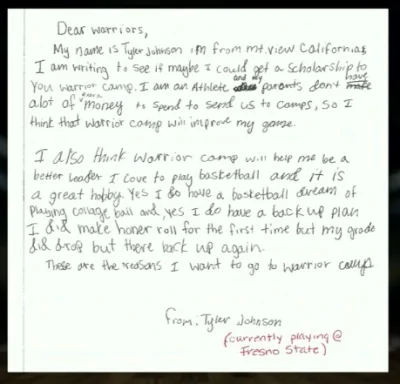 Dear Warriors,
My name is Tyler Johnson im from mt.view California &
I am writing to see if maybe I could get a scholarship to
you warrior camp. I am an Athlete and my parents don't have
alot of extra money to spend to send us to camps, so I
think that warrior camp will improve my game.
I also think warrior camp will help me be a
better leader I love to play basketball and it is
a great hobby. yes I do have a basketball dream of
Playing collage ball and yes I do have a back up plan
I did make honer roll for the first time but my grade
did drop but there back up again.
These are the reasons I want to go to warrior camp
from. Tyler Johnson
(currently playing @
Fresno State)